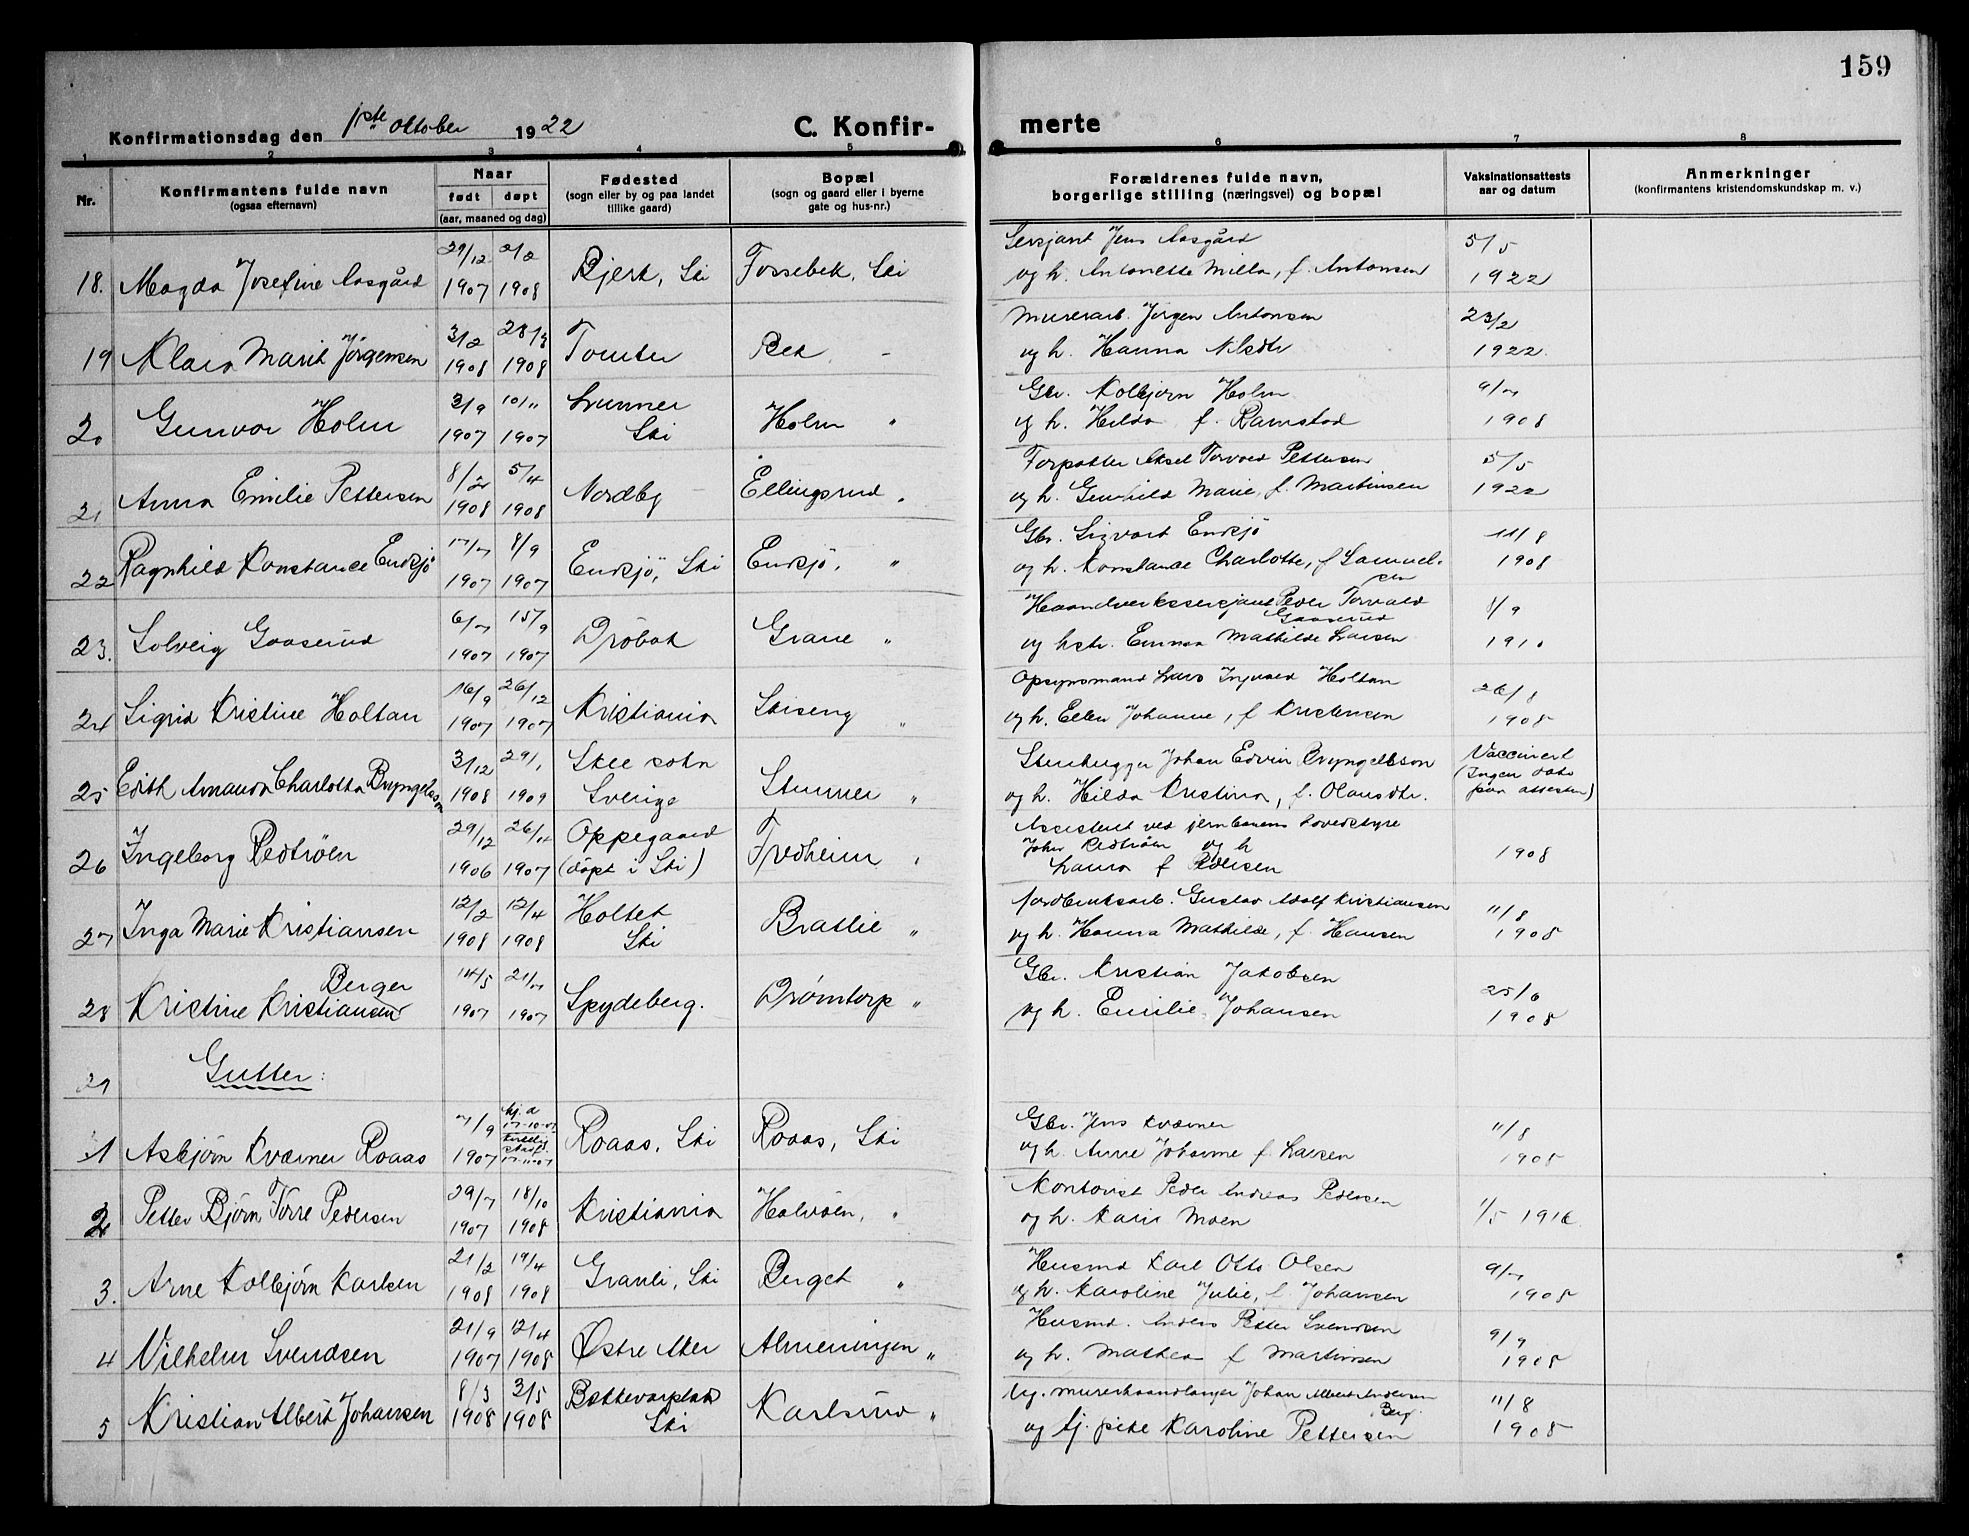 159
Konfirmationsdag den 1ste oktober 1922 C. Konfirmerte
1 2 3 4 5 6 7 8
Nr. Konfirmantens fulde navn (ogsaa efternavn) Naar født døpt (aar, maaned og dag) Fødested (sogn eller by og paa landet tillike gaard) Bopæl (sogn og gaard eller i byerne gate og hus-nr.) Forældrenes fulde navn, borgerlige stilling (næringsvei) og bopæl Vaksinationsattests aar og datum Anmerkninger (konfirmantens kristendomskundskap m. v.)
18. Magda Josefine Aasgård 29/12 1907 2/2 1908 Bjerk, Ski Fossebek, Ski Sersjant Jens Aasgård og h. Antonette Milla, f. Antonsen 5/5 1922
19 Klara Marit Jørgensen 3/2 1908 28/3 1908 Tomter Rek - Murerarb. Jørgen Antonsen og h. Hanna Nilsdtr 23/2 1922.
20 Gunvor Holm 3/9 1907 10/11 1907 Lunner Ski Holm " Gbr. Kolbjørn Holm og h. Hilda f. Ramstad 9/7 1908
21 Anna Emilie Pettersen 8/2 1908 5/4 1908 Nordby - Ellingsrud " Forpagter Aksel Torvald Pettersen og h. Gunhild Marie, f. Martinsen 5/5 1922
22 Ragnhild Konstance Endsjö 17/7 1907 8/9 1907 Endsjö, Ski Endsjö, " Gbr. Sigvart Endsjö og h. Konstanse Charlotte, f Samuelsen 11/8 1908
23. Solveig Gaaserud 6/7 1907 15/9 1907 Drøbak Grane " Haandverkssersjant Peder Torvald Gaaserud og hstr. Emma Mathilde Larsen 1/9 1910
24 Sigrid Kristine Holtan 16/9 1907 26/12 1907 Kristiania Skiseng " Opsynsmand Lars Ingvald Holtan og h. Ellen Johanne, f Kristensen 26/8 1908
25 Edith Amanda Charlotta Bryngelsson 3/12 1908 29/1 1909 Skee sokn Sverige Stunner " Stenhugger Johan Edvin Bryngelsson og h. Hilda Kristina, f. Olausdtr. Vaccinert (Ingen dato paa attesten)
26 Ingeborg Redtrøen 29/12 1906 26/11 1907 Oppegaard (døpt i Ski) Fredheim " Assistent ved jernbanens hovedstyre John Redtrøen og h Laura f Pedersen 1908
27 Inga Marie Kristiansen 12/2 1908 12/4 1908 Holtet Ski Bratlie " Jordbruksarb. Gustav Adolf Kristiansen og h. Hanna Mathilde, f. Hansen 11/8 1908
28 Kristine Kristiansen Berger 14/5 1907 21/7 1907 Spydeberg. Drømtorp " Gbr. Kristian Jakobsen og h. Emilie Johansen 25/6 1908
29 Gutter:
1 Asbjørn Kværner Roaas 7/9 1907 hj.d 17-10-07 kirkelig stadf. 17-11-07 Roaas, Ski Roaas, Ski Gbr. Jens Kværner og h. Anne Johanne f Larsen 11/8 1908
2 Petter Bjørn Torre Pedersen 29/7 1907 18/10 1908 Kristiania Halvøen, " Kontorist Peder Andreas Pedersen og h. Karin Moen 1/5 1916.
3. Arne Kolbjørn Karlsen 21/2 1908 19/4 1908 Granli, Ski Berget " Husmd Karl Otto Olsen og h. Karoline Julie, f. Johansen 9/7 1908
4 Vilhelm Svendsen 21/9 1907 12/4 1908 Østre Aker Almeningen " Husmd. Anders Petter Svendsen og h. Mathea f Martinsen 9/9 1908
5 Kristian Albert Johansen 8/3 1908 3/5 1908 Bøttevarplads Ski Karlsrud " Ug. murerhaandlanger Johan Albert Andersen Berg. og tj. pike Karoline Pettersen 11/8 1908